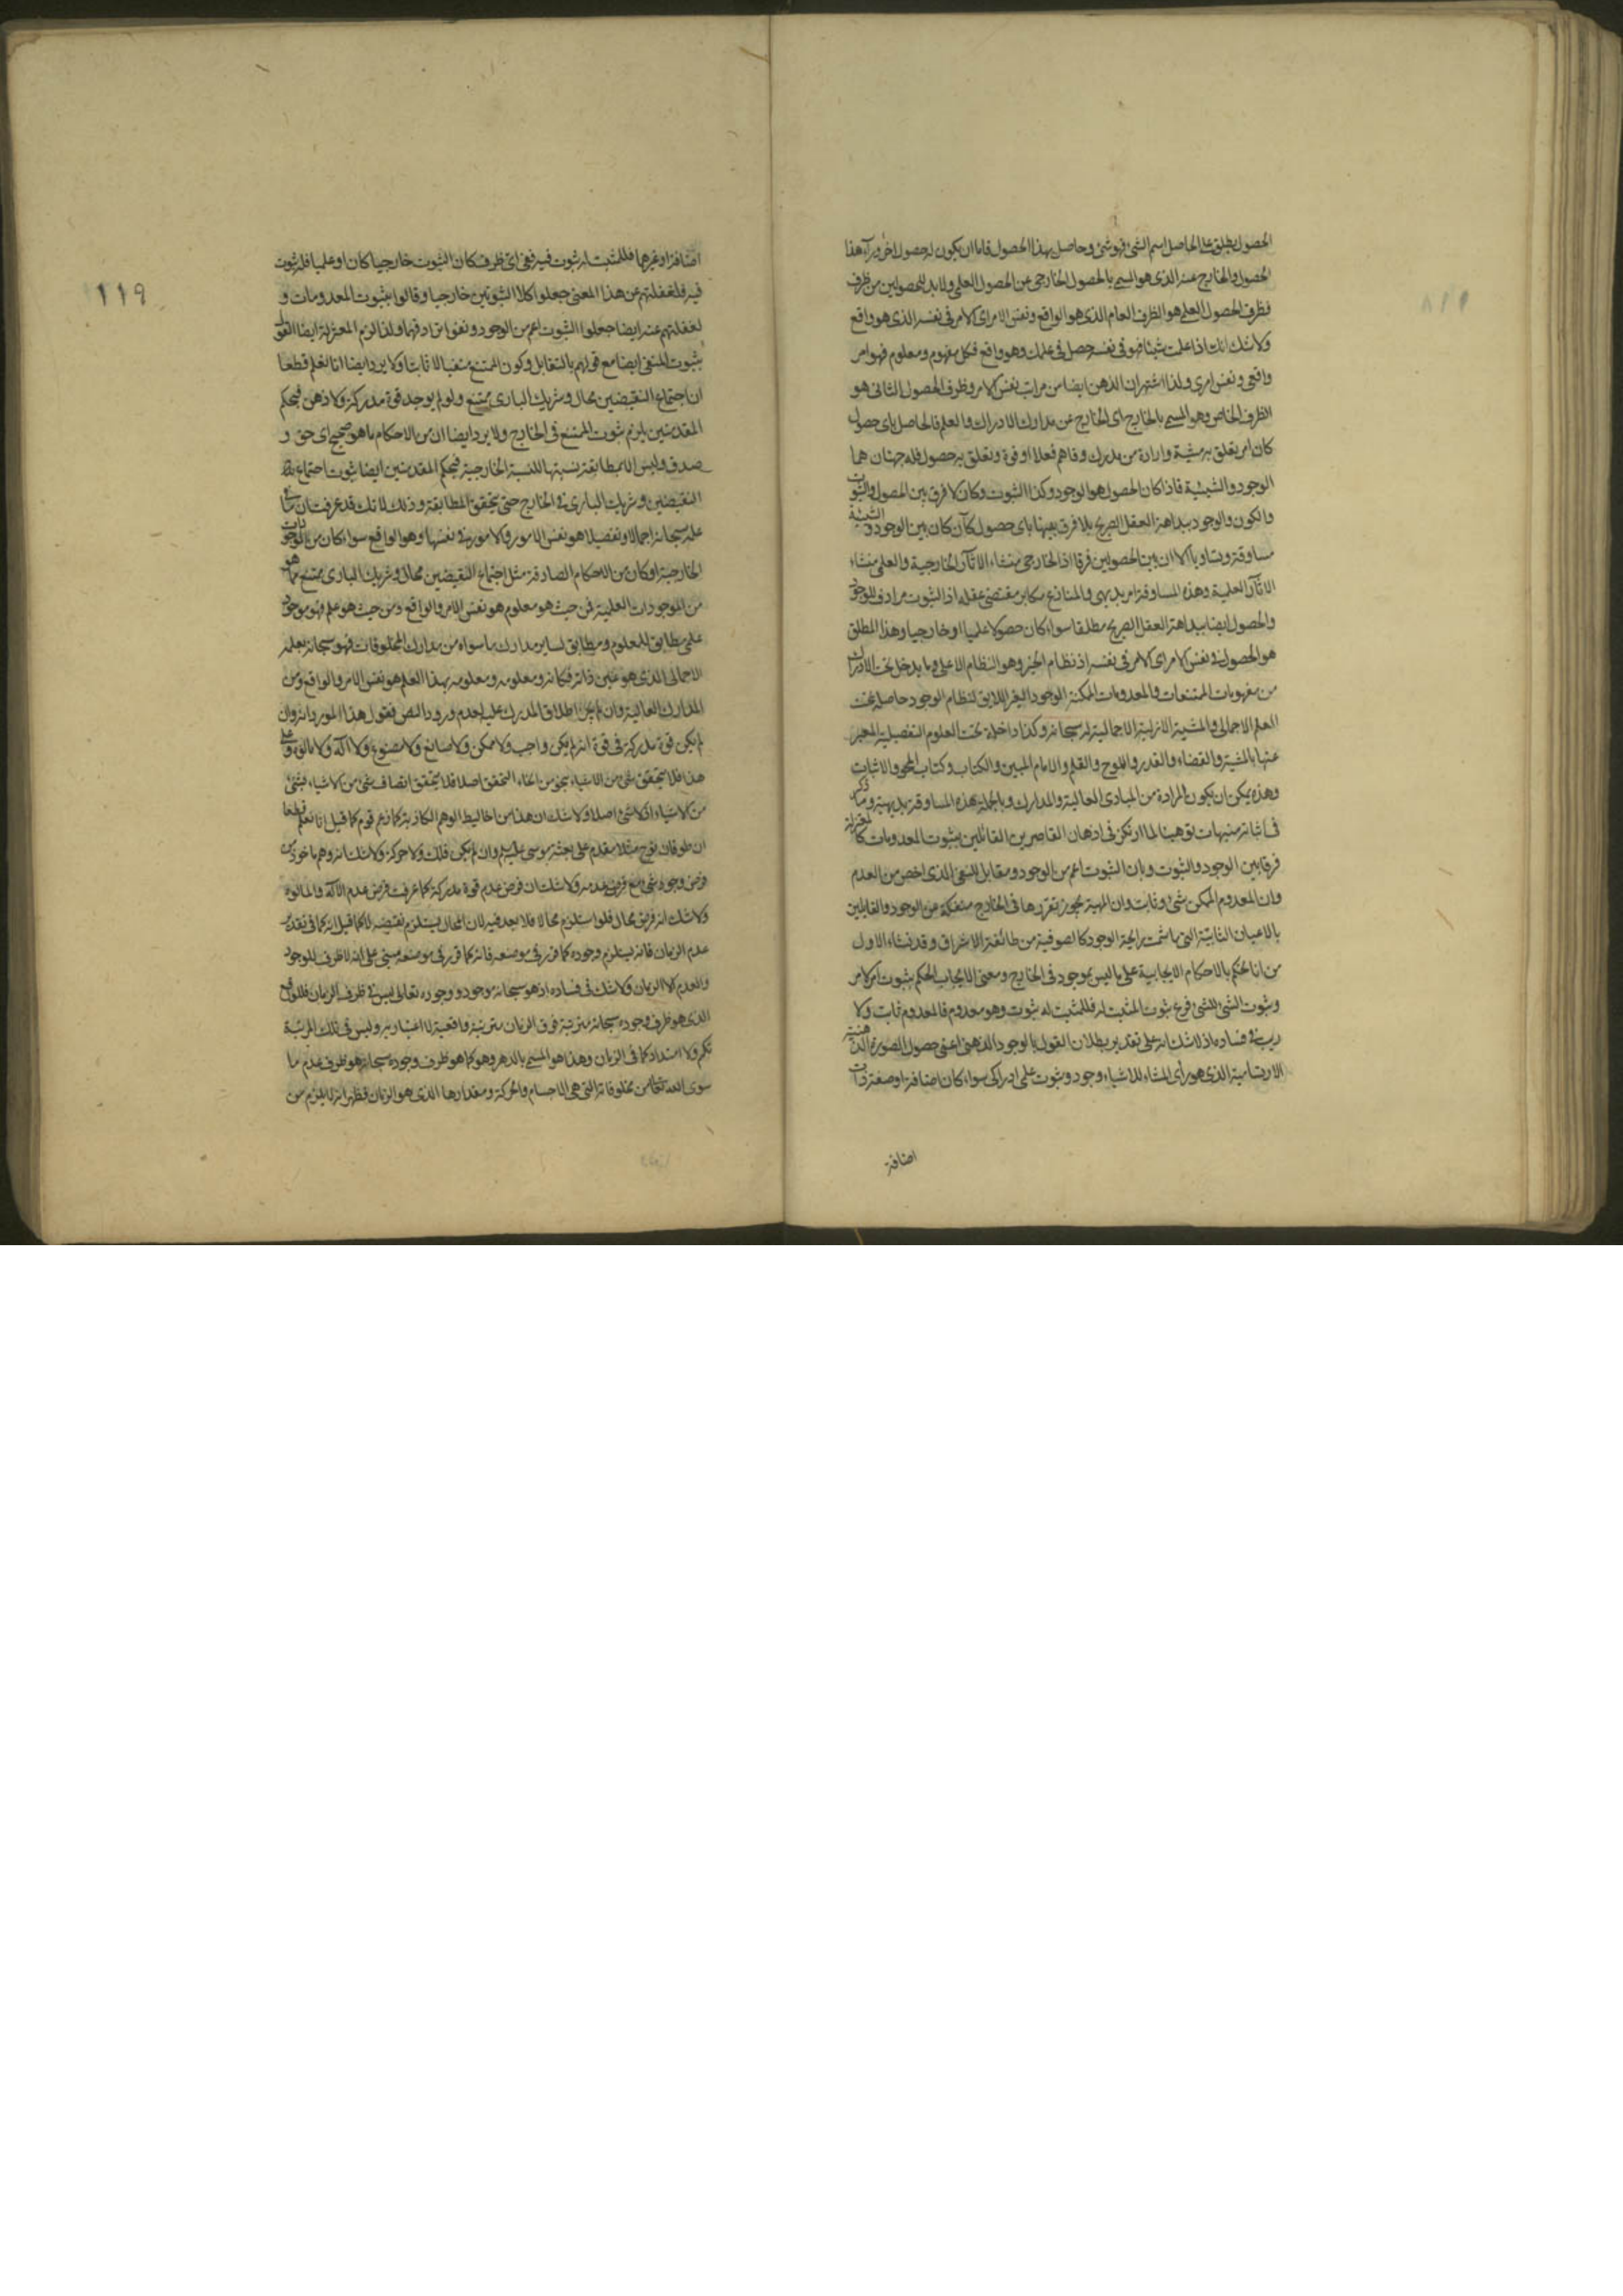 الحصول يطلق على الحاصل اسم الشئ فهو شئ وحاصل بهذا الحصول فاما ان يكون له حصول اخر وراء هذا
الحصول والخارج عنه الذى هو المسمى بالحصول الخارجى عن الحصول العلمى ولا بد للحصولين من ظرف
فظرف الحصول العلمى هو الظرف العام الذى هو الواقع ونفس الامر اى الامر فى نفسه الذى هو واقع
ولا شك انك اذا علمت شيئا فهو فى نفسه حصل فى علمك وهو واقع فكل مفهوم ومعلوم فهو امر
واقعى ونفس امرى ولذا اشتهر ان الذهن ايضا من مراتب نفس الامر وظرف الحصول الثانى هو
الظرف الخاص وهو المسمى بالخارج اى الخارج عن مدارك الادراك والعلم فالحاصل باى حصول
كان امر يعلق به مشية وارادة من مدرك وفاهم فعلا او قوة وتعلق به حصول فله جهتان هما
الوجود والشيئية فاذا كان الحصول هو الوجود وكذا الثبوت وكان لا فرق بين الحصول والثبوت
والكون والوجود ببداهة العقل الصريح بلا فرق بينها باى حصول كان كان بين الوجود والشيئية
مساوقة وتساو الا ان بين الحصولين فرقا اذ الخارجى منشاء الاثار الخارجية والعلمى منشاء
الاثار العلمية وهذه المساوقة امر بديهى والمنازع مكابر مقتضى عقله اذ الثبوت مرادف للوجود
والحصول ايضا ببداهة العقل الصريح مطلقا سواء كان حصولا علميا او خارجيا وهذا المطلق
هو الحصول فى نفس الامر اى الامر فى نفسه اذ نظام الخير وهو النظام الاعلى وما يدخل تحت الادراك
من مفهومات الممتنعات والمعدومات الممكنة الوجود الغير اللايق لنظام الوجود حاصلة تحت
العلم الاجمالى والمشية الازلية الاجمالية له سبحانه وكذا داخلة تحت العلوم التفصيلية المعبر
عنها بالمشية والقضاء والقدر واللوح والقلم والامام المبين والكتاب وكتاب المحو والاثبات
وهذه يمكن ان يكون المرادة من المبادى العالية والمدارك وبالجملة هذه المساوقة بديهية وما ذكر
فى اثباته منبهات توهينا لما ارتكز فى اذهان القاصرين القائلين بثبوت المعدومات كالمعتزلة
فرقا بين الوجود والثبوت وبان الثبوت اعم من الوجود ومقابل للنفى الذى اخص من العدم
وان المعدوم الممكن شئ وثابت وان المهية يجوز تقررها فى الخارج منفكة عن الوجود والقايلين
بالاعيان الثابتة التى ما شمت رايحة الوجود كالصوفية من طائفة الاشراق وقد نشاء الاول
من انا نحكم بالاحكام الايجابية على ما ليس بموجود فى الخارج ومعنى الايجاب الحكم بثبوت امر لامر
وثبوت الشئ للشئ فرع ثبوت المثبت له فللمثبت له ثبوت وهو معدوم فالمعدوم ثابت ولا
ريب فى فساده اذ لا شك انه على تقدير بطلان القول بالوجود الذهنى اعنى حصول الصورة الذهنية
الارتسامية الذى هو راى المشاء للاشياء وجود وثبوت علمى ادراكى سواء كان اضافة او صفة ذات
اضافة
اضافة او غيرها فللمثبت له ثبوت فيه ففى اى ظرف كان الثبوت خارجيا كان او علميا فله ثبوت
فيه فلغفلتهم عن هذا المعنى جعلوا كلا الثبوتين خارجيا وقالوا بثبوت المعدومات و
لغفلتهم عنه ايضا جعلوا الثبوت اعم من الوجود ونفوا ترادفهما ولذا لزم المعتزلة ايضا القول
بثبوت المنفى ايضا مع قولهم بالتقابل وكون الممتنع منفيا لا ثابتا ولا يرد ايضا انا نعلم قطعا
ان اجتماع النقيضين محال وشريك البارى ممتنع ولو لم يوجد قوة مدركة ولا ذهن فبحكم
المقدمتين يلزم ثبوت الممتنع فى الخارج ولا يرد ايضا ان من الاحكام ما هو صحيح اى حق و
صدق وليس الا بمطابقة نسبتها للنسبة الخارجية فبحكم المقدمتين ايضا ثبوت اجتماع
النقيضين وشريك البارى فى الخارج حتى يتحقق المطابقة وذلك لانك قد عرفت ان
علمه سبحانه اجمالا وتفصيلا هو نفس الامور والامور فى نفسها وهو الواقع سواء كان من الموجودات
الخارجية او كان من الاحكام الصادقة مثل اجتماع النقيضين محال وشريك البارى ممتنع مما هو
من الموجودات العلمية فمن حيث هو معلوم هو نفس الامر والواقع ومن حيث هو علم فهو موجود
علمى مطابق للمعلوم ومطابق لساير مدارك ما سواه من مدارك المخلوقات فهو سبحانه بعلمه
الاجمالى الذى هو عين ذاته فكانه ومعلومه ومعلومه بهذا العلم هو نفس الامر والواقع ومن
المدارك العالية وان لم يجز اطلاق المدرك عليه لعدم ورود النص فنقول هذا المورد انه وان
لم يكن قوة مدركة فى قوة انه لم يكن واجب ولا ممكن ولا صانع ولا مصنوع ولا اله ولا مالوه وعلى
هذا فلا يتحقق شئ من الاشياء بنحو من انحاء التحقق اصلا فلا يتحقق اتصاف شئ من الاشياء بشئ
من الاشياء اذ لا شئ اصلا ولا شك ان هذا من اغاليط الوهم الكاذبة كما زعم قوم كما قيل انا نعلم قطعا
ان طوفان نوح مثلا مقدم على بعثة موسى عليه السلام وان لم يكن فلك ولا حركة ولا شك انه وهم ماخوذ من
فرض وجود شئ مع فرض عدمه ولا شك ان فرض عدم قوة مدركة كما عرفت فرض عدم الاله والمالوه
ولا شك انه فرض محال فلو استلزم محالا فلا بعد فيه لان المحال يستلزم نقيضه كما قيل انه كما فى تقدير
عدم الزمان فانه يستلزم وجوده كما قرر فى موضعه فانه كما قرر فى موضعه مبنى على انه لا ظرف للوجود
والعدم الا الزمان ولا شك فى فساده اذ هو سبحانه موجود ووجوده تعالى ليس فى ظرف الزمان فللواقع
الذى هو ظرف وجوده سبحانه مرتبة فوق الزمان مرتبة واقعية لا اعتبارية وليس فى تلك المرتبة
تكمم ولا امتداد كما فى الزمان وهذا هو المسمى بالدهر وهو كما هو ظرف وجوده سبحانه هو ظرف عدم ما
سوى الله تعالى من مخلوقاته التى هى الاجسام والحركة ومقدارها الذى هو الزمان فظهر انه لا يلزم من
١١٩